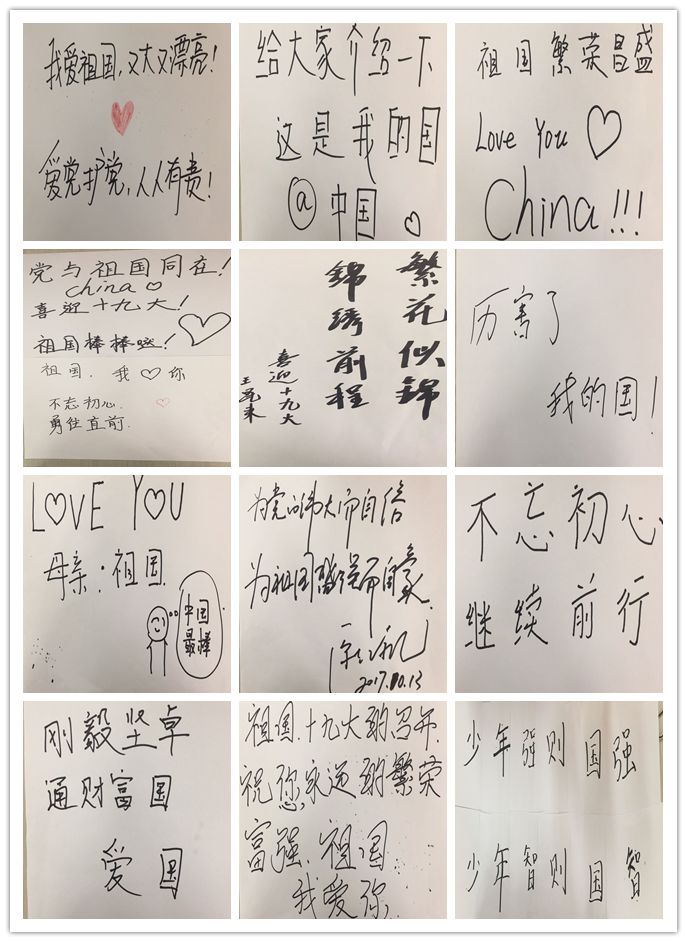 我爱祖国,又大又漂亮!
爱党护党,人人有责!
给大家介绍一下
这是我的国
@中国
祖国繁荣昌盛
Love You
China!!!
党与祖国同在!
China
喜迎十九大!
祖国棒棒哒!
祖国,我你
不忘初心
勇往直前.
繁花似锦
锦琇前程
喜迎十九大
厉害了
我的国!
LOVE YOU
母亲:祖国
中国
最棒
为党的伟大而自信
为祖国繁强而自豪.
2017.10.13
不忘初心
继续前行
刚毅坚卓
通财富国
爱国
祖国、十九大的召开,
祝您永远的繁荣
富强、祖国
我爱你
少年强则国强
少年智则国智